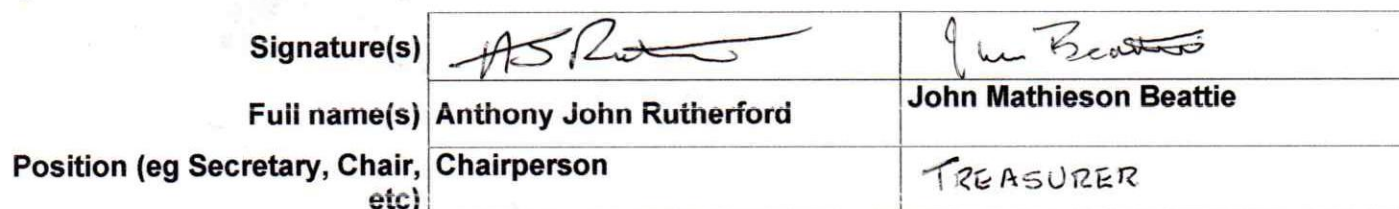 Signature(s) AS Rut John Beattie
Full name(s) Anthony John Rutherford John Mathieson Beattie
Position (eg Secretary, Chair, etc) Chairperson TREASURER